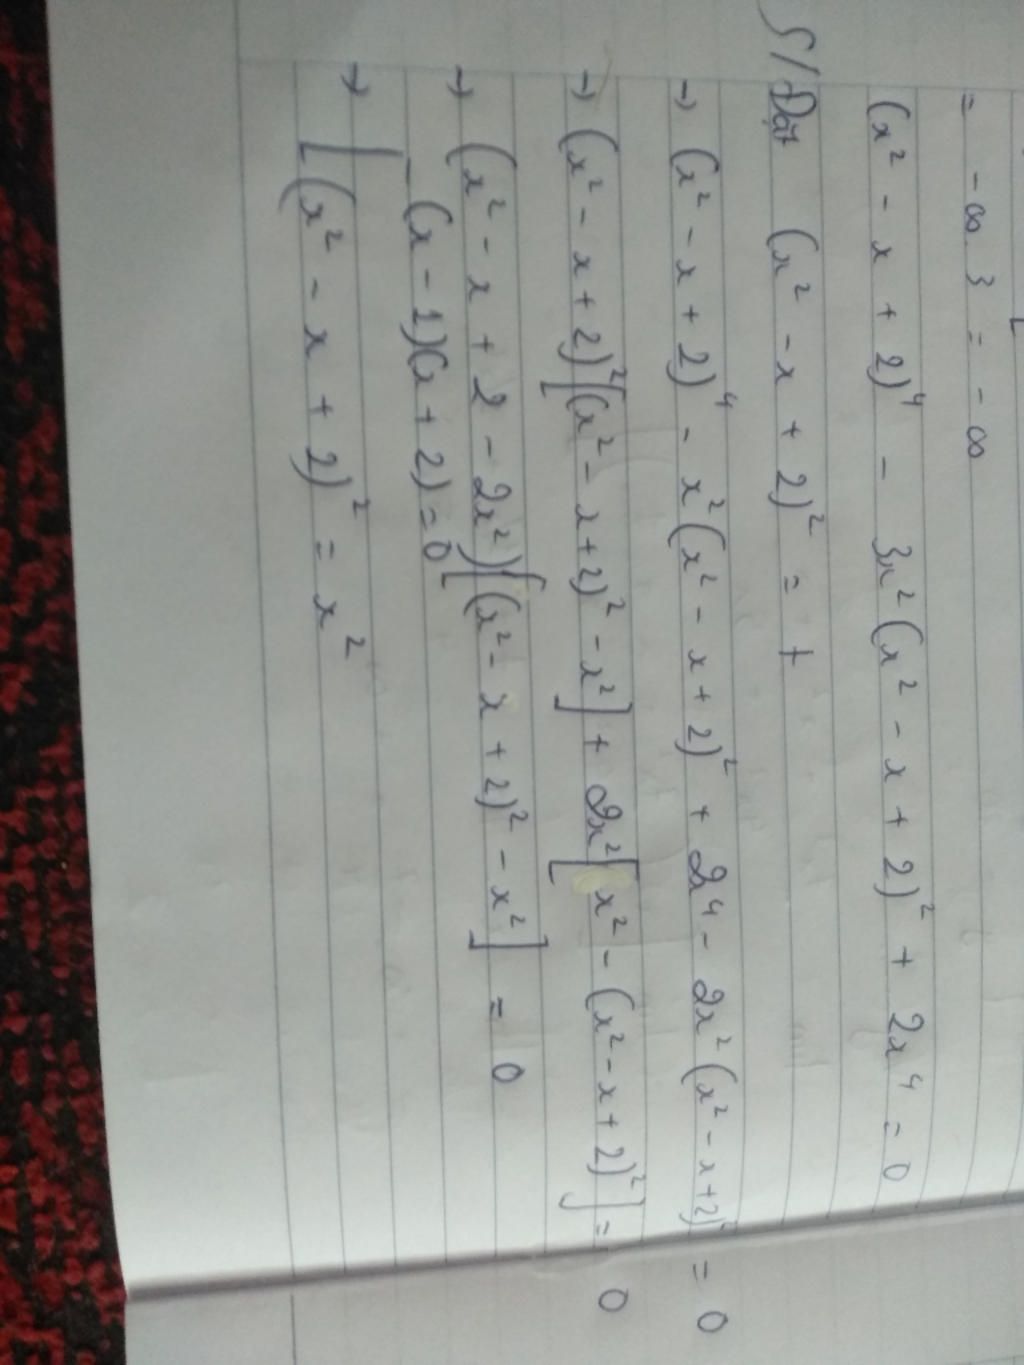 = -∞ . 3 = -∞
(x² - x + 2)⁴ - 3x²(x² - x + 2)² + 2x⁴ = 0
S/ Đặt (x² - x + 2)² = t
→ (x² - x + 2)⁴ - x²(x² - x + 2)² + 2x⁴ - 2x²(x² - x + 2)² = 0
→ (x² - x + 2)²[(x² - x + 2)² - x²] + 2x²[x² - (x² - x + 2)²] = 0
→ (x² - x + 2 - 2x²)[(x² - x + 2)² - x²] = 0
→ [ -(x - 1)(x + 2) = 0
(x² - x + 2)² = x²